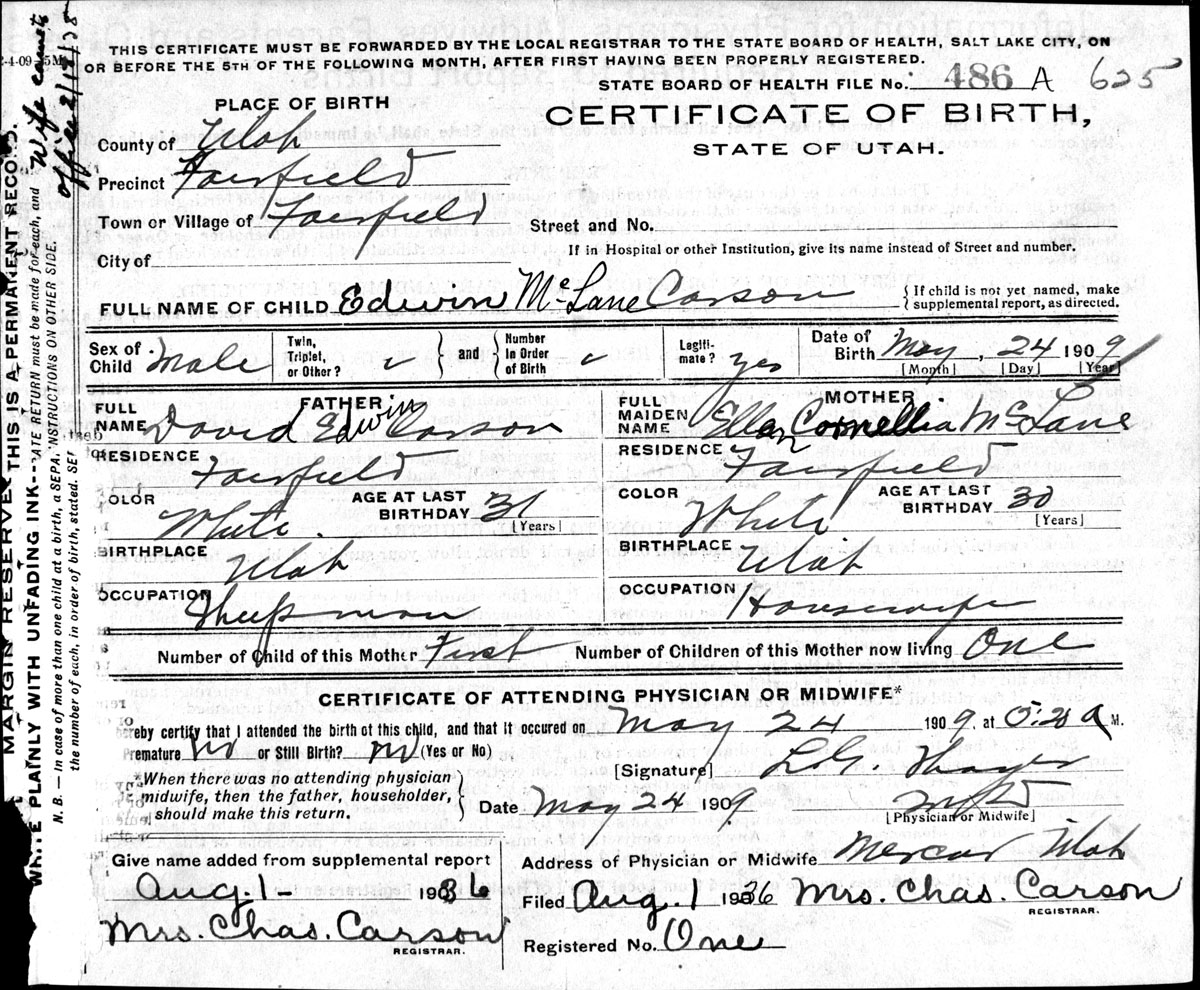 THIS CERTIFICATE MUST BE FORWARDED BY THE LOCAL REGISTRAR TO THE STATE BOARD OF HEALTH, SALT LAKE CITY, ON
OR BEFORE THE 5TH OF THE FOLLOWING MONTH, AFTER FIRST HAVING BEEN PROPERLY REGISTERED.
STATE BOARD OF HEALTH FILE No. 486 A 625
PLACE OF BIRTH
CERTIFICATE OF BIRTH,
STATE OF UTAH.
County of Utah
Precinct Fairfield
Town or Village of Fairfield
Street and No.
If in Hospital or other Institution, give its name instead of Street and number.
City of
FULL NAME OF CHILD Edwin McLane Carson
{ If child is not yet named, make
supplemental report, as directed.
Sex of Child Male
Twin, Triplet, or Other? } and { Number In Order of Birth
Legiti- mate? yes
Date of Birth May, 24 1909
[Month] [Day] [Year]
FATHER
FULL NAME David Edwin Carson
RESIDENCE Fairfield
COLOR White
AGE AT LAST BIRTHDAY 31
[Years]
BIRTHPLACE Utah
OCCUPATION Sheepman
MOTHER
FULL MAIDEN NAME Ellen Cornelia McLane
RESIDENCE Fairfield
COLOR White
AGE AT LAST BIRTHDAY 30
[Years]
BIRTHPLACE Utah
OCCUPATION Housewife
Number of Child of this Mother First
Number of Children of this Mother now living One
CERTIFICATE OF ATTENDING PHYSICIAN OR MIDWIFE*
hereby certify that I attended the birth of this child, and that it occured on May 24 1909. at A M.
Premature no or Still Birth? no (Yes or No)
[Signature]
*When there was no attending physician
midwife, then the father, householder,
should make this return. }
Date May 24 1909
[Physician or Midwife]
Give name added from supplemental report
Aug 1- 1936
Mrs. Chas. Carson
REGISTRAR.
Address of Physician or Midwife Mercur Utah
Filed Aug. 1 1936 Mrs. Chas. Carson
REGISTRAR.
Registered No. One
MARGIN RESERVE THIS IS A PERMANENT RECORD.
WRITE PLAINLY WITH UNFADING INK---
N. B. — In case of more than one child at a birth, a SEPARATE RETURN must be made for each, and
the number of each, in order of birth, stated. SEE INSTRUCTIONS ON OTHER SIDE.